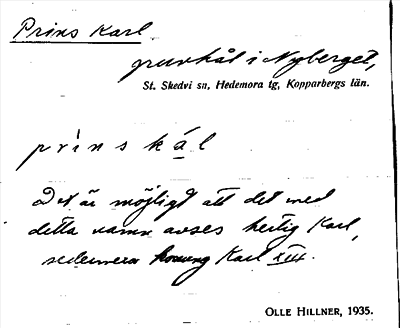 Prins Karl
gruvhål i Nyberget,
St. Skedvi sn, Hedemora tg, Kopparbergs län.
prìns kál
Det är möjligt att det med
detta namn avses hertig Karl,
sedermera konung Karl XIII.
OLLE HILLNER, 1935.